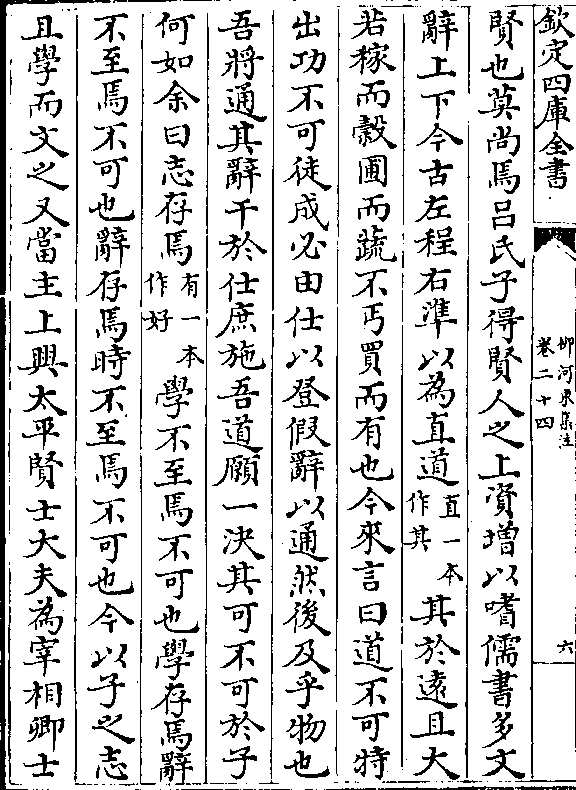 欽定四庫全書
柳河東集注
卷二十四
六
賢也莫尚焉吕氏子得賢人之上資增以嗜儒書多文
辭上下今古左程右準以為直道直一本作其其於遠且大
若稼而穀圃而蔬不丐買而有也今來言曰道不可特
出功不可徒成必由仕以登假辭以通然後及乎物也
吾將通其辭干於仕庶施吾道願一決其可不可於子
何如余曰志存焉有一本作好學不至焉不可也學存焉辭
不至焉不可也辭存焉時不至焉不可也今以子之志
且學而文之又當主上興太平賢士大夫為宰相卿士